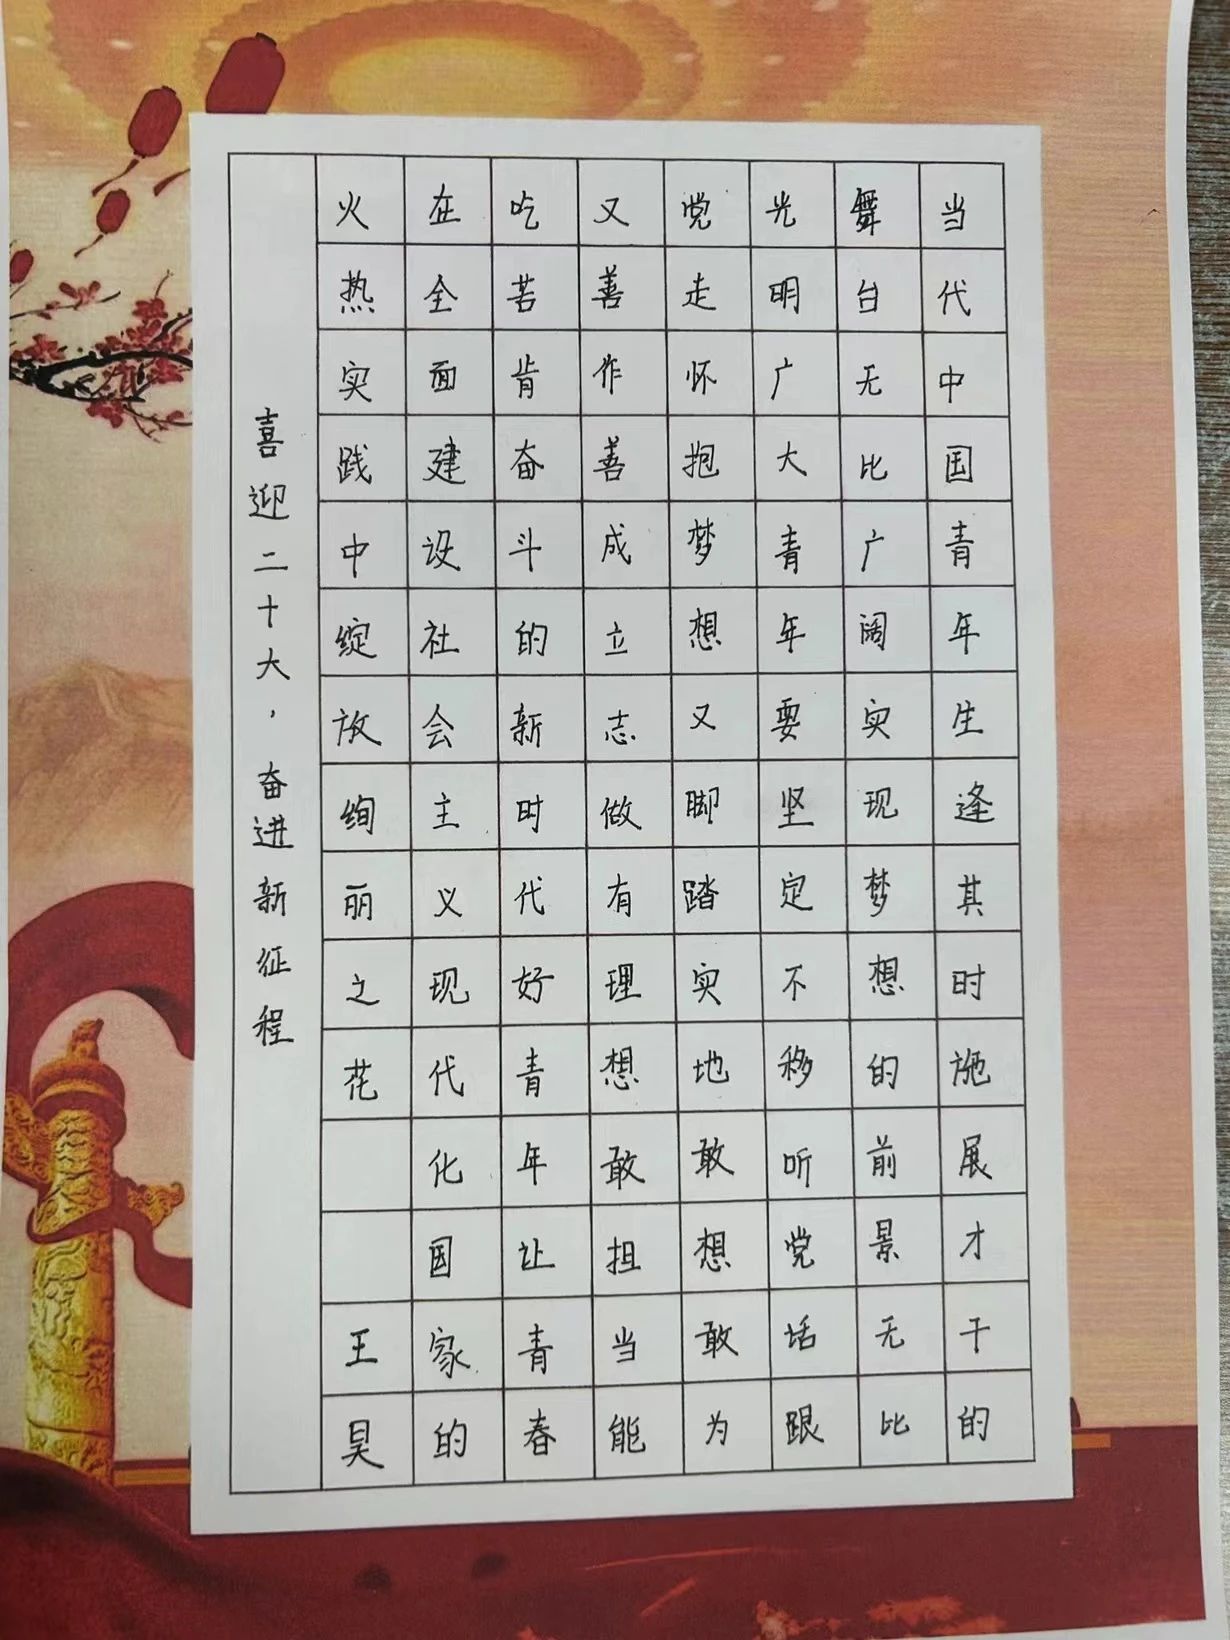 当代中国青年生逢其时施展才干的
舞台无比广阔实现梦想的前景无比
光明广大青年要坚定不移听党话跟
党走怀抱梦想又脚踏实地敢想敢为
又善作善成立志做有理想敢担当能
吃苦肯奋斗的新时代好青年让青春
在全面建设社会主义现代化国家的
火热实践中绽放绚丽之花 王昊
喜迎二十大，奋进新征程